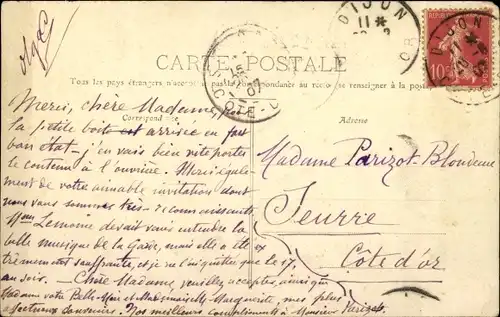 DIJON
11
DIJON
10
CARTE POSTALE
CÔTE-D
07
Tous les pays étrangers n'accep pas la correspondance au recto se renseigner à la poste
Correspondance
Adresse
Merci, chère Madame,
la petite boîte est arrivée en fort
bon état, j'en vais bien vite porter
le contenu à l'ouvrière. Merci égale
ment de votre aimable invitation dont
nous vous sommes très reconnaissants
Mme Lemoine devait vous entendre la
belle musique de la Gare, mais elle a été ex
trêmement souffrante, et je ne l'ai quittée que le 17
au soir. - Chère Madame, veuillez accepter, ainsi que
Madame votre Belle-Mère et Mademoiselle Marguerite, mes plus
affectueux souvenirs. Nos meilleurs compliments à Monsieur Parizot.
Madame Parizot-Blondeau
Seurre
Côte d'or